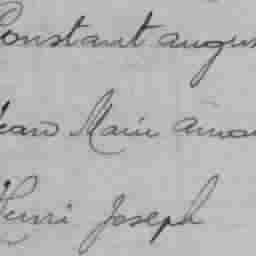 Constant augus
Jean Marie Aman
Henri Joseph